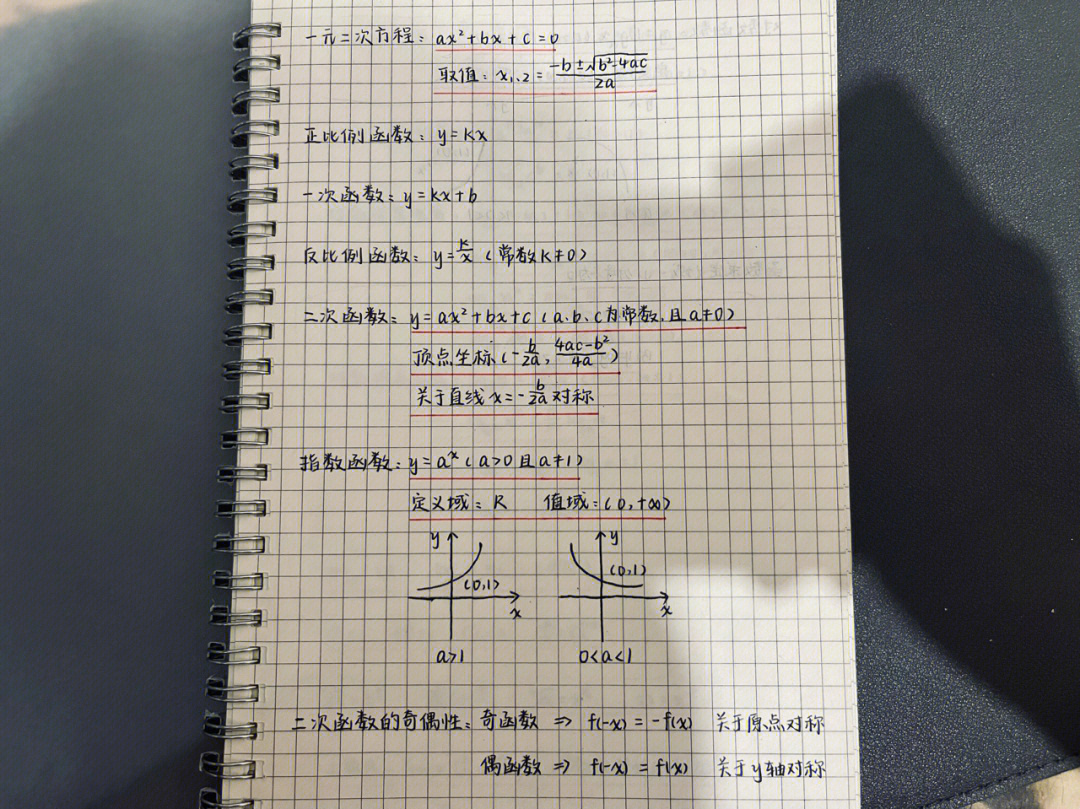 一元二次方程: ax²+bx+c=0
取值: x₁,₂ = (-b±√(b²-4ac))/(2a)
正比例函数: y=kx
一次函数: y=kx+b
反比例函数: y=k/x (常数k≠0)
二次函数: y=ax²+bx+c (a、b、c为常数,且a≠0)
顶点坐标(-b/2a, (4ac-b²)/4a)
关于直线x=-b/2a对称
指数函数: y=aˣ (a>0且a≠1)
定义域: R 值域: (0,+∞)
y y
(0,1) (0,1)
x x
a>1 0<a<1
二次函数的奇偶性: 奇函数 ⇒ f(-x)=-f(x) 关于原点对称
偶函数 ⇒ f(-x)=f(x) 关于y轴对称